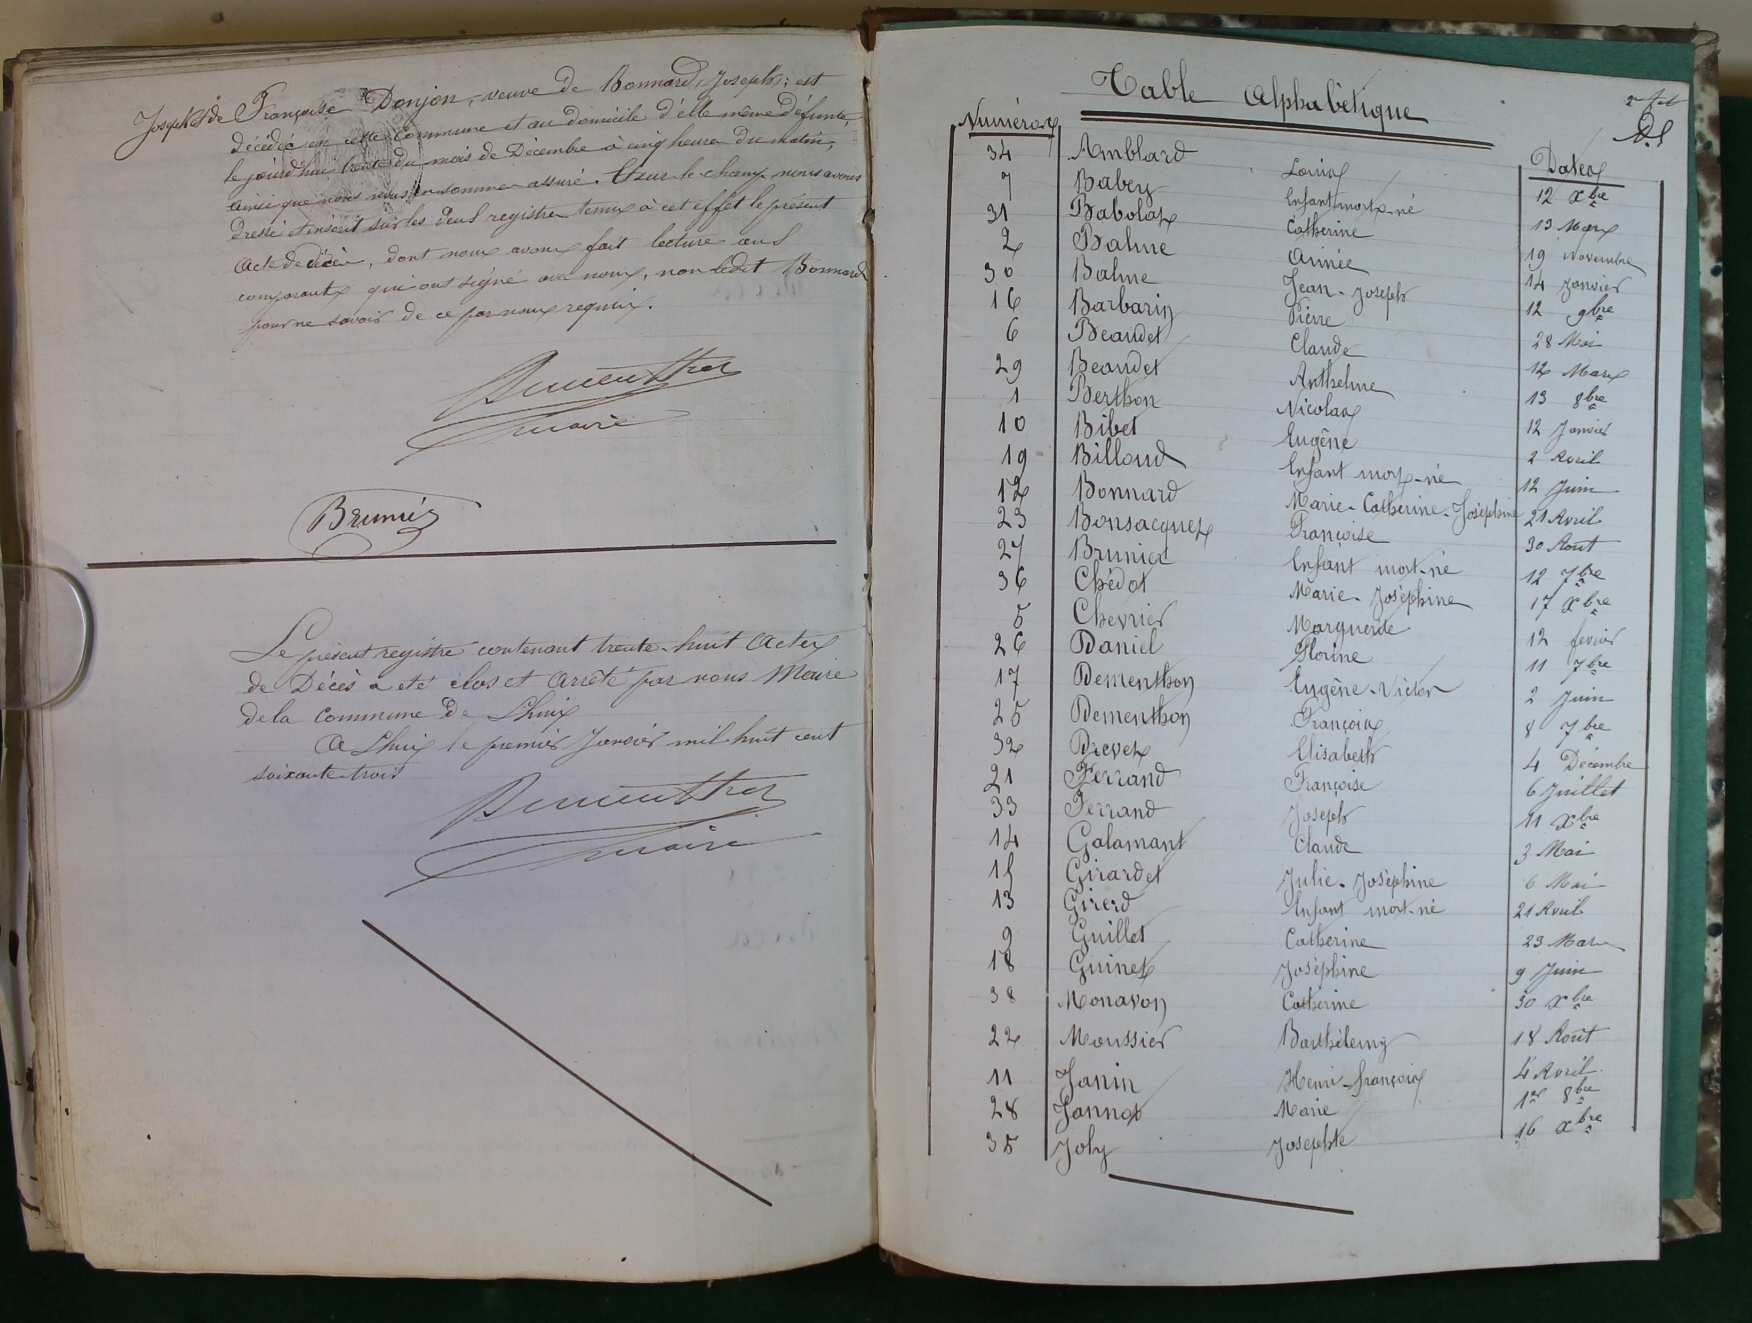 Joseph et de Françoise Donjon, veuve de Bonnard, Joseph; est
décédée en cette commune et au domicile d'elle même défunte,
le jourd'hui trente du mois de Décembre à cinq heures du matin,
ainsi que nous nous en sommes assuré. Et sur le champ nous avons
dressé et inscrit sur les deux registres tenus à cet effet le présent
acte de décès, dont nous avons fait lecture aux
comparants qui ont signé avec nous, non ledit Bonnard
pour ne savoir de ce par nous requis.
Dementhon
maire
Brunier
Le présent registre contenant trente-huit Actes
de Décès a été clos et arrêté par nous Maire
de la Commune de Lhuis
A Lhuis le premier Janvier mil huit cent
soixante-trois
Dementhon
maire
Table Alphabétique
Numéros Dates
34 Amblard Louis 12 Xbre
7 Babey Enfant mort-né 13 Mars
31 Babolat Catherine 19 Novembre
2 Balme Aimée 14 Janvier
30 Balme Jean-Joseph 12 9bre
16 Barbarin Pierre 28 Mai
6 Beaudet Claude 12 Mars
29 Beaudet Anthelme 13 8bre
1 Berthon Nicolas 12 Janvier
10 Bibet Eugène 2 Avril
19 Billoud Enfant mort-né 12 Juin
12 Bonnard Marie-Catherine-Joséphine 21 Avril
23 Bonsacquet Françoise 30 Août
27 Brunier Enfant mort-né 12 7bre
36 Chédot Marie-Joséphine 17 Xbre
5 Chevrier Marguerite 12 février
26 Daniel Florine 11 7bre
17 Dementhon Eugène-Victor 2 Juin
25 Dementhon François 8 7bre
32 Drevet Elisabeth 4 Décembre
21 Ferrand Françoise 6 Juillet
33 Ferrand Joseph 11 Xbre
14 Galamant Claude 3 Mai
15 Girardet Julie-Joséphine 6 Mai
13 Girerd Enfant mort-né 21 Avril
9 Guillet Catherine 23 Mars
18 Guinet Joséphine 9 Juin
38 Monavon Catherine 30 Xbre
22 Moussier Barthélemy 18 Août
11 Janin Henri-François 4 Avril
28 Jannot Marie 1er 8bre
35 Joly Josephte 16 Xbre